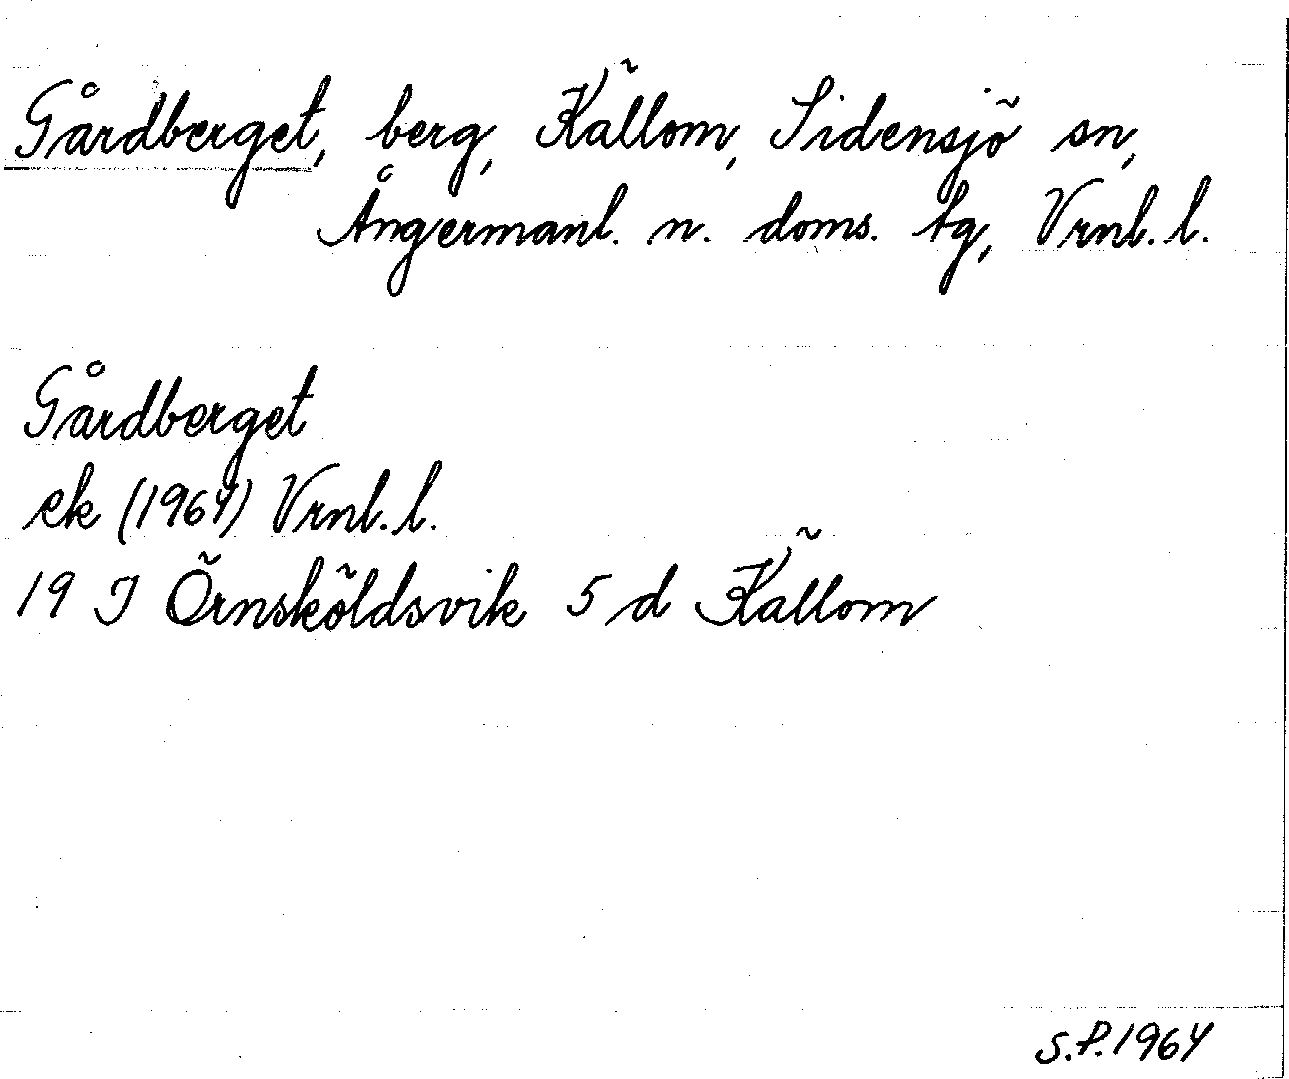 Gårdberget, berg, Källom, Sidensjö sn,
Ångermanl. n. doms. tg, Vrnl. l.
Gårdberget
ek (1964) Vrnl. l.
19 J Örnsköldsvik 5 d Källom
S.P. 1964